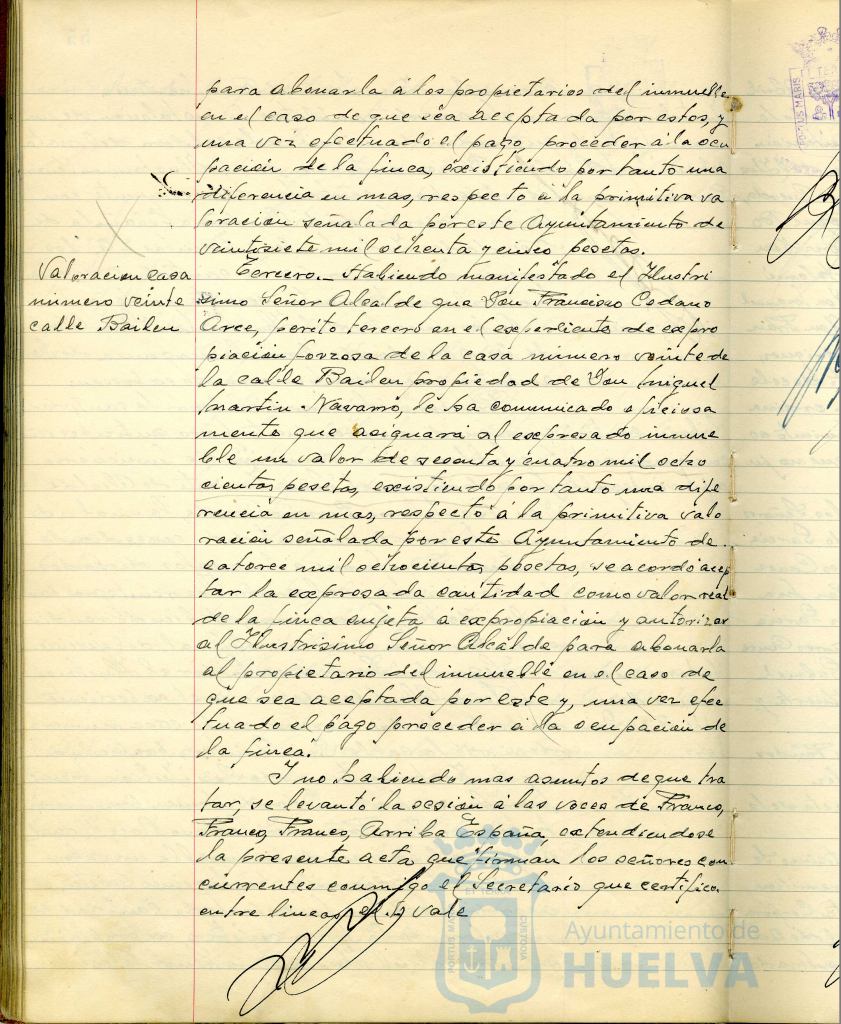 para abonarla á los propietarios del inmueble
en el caso de que sea aceptada por estos, y
una vez efectuado el pago, proceder á la ocu
pación de la finca, existiendo por tanto una
diferencia en mas, respecto á la primitiva va
loración señalada por este Ayuntamiento de
veintisiete mil ochenta y cinco pesetas.
Valoracion casa
numero veinte
calle Bailen
Tercero.- Habiendo manifestado el Ilustri
simo Señor Alcalde que Don Francisco
Arce, perito tercero en el expediente de expro
piación forzosa de la casa numero veinte de
la calle Bailen propiedad de Don Miguel
Martin Navarro, le ha comunicado oficiosa
mente que asignará al expresado inmue
ble un valor de sesenta y cuatro mil ocho
cientas pesetas, existiendo por tanto una dife
rencia en mas, respecto á la primitiva valo
ración señalada por este Ayuntamiento de
catorce mil ochocientas pesetas, se acordó acep
tar la expresada cantidad como valor real
de la finca sujeta á expropiación y autorizar
al Ilustrisimo Señor Alcalde para abonarla
al propietario del inmueble en el caso de
que sea aceptada por este y, una vez efec
tuado el pago proceder á la ocupación de
la finca.
Y no habiendo mas asuntos de que tra
tar, se levantó la sesión á las voces de Franco,
Franco, Franco, Arriba España, extendiendose
la presente acta que firman los señores con
currentes conmigo el Secretario que certifico.
entre lineas vale
Ayuntamiento de
HUELVA
PORTUS MARIS
CUSTODIA
PORTUS MARIS